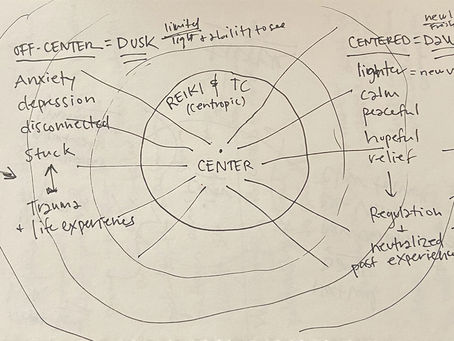 OFF-CENTER = DUSK limited light + ability to see
Anxiety
depression
disconnected
Stuck
Trauma
+ life experiences
REIKI & TC
(centropic)
CENTER
CENTERED =
lighter =
calm
peaceful
hopeful
relief
Regulation
+
neutralized
past experience